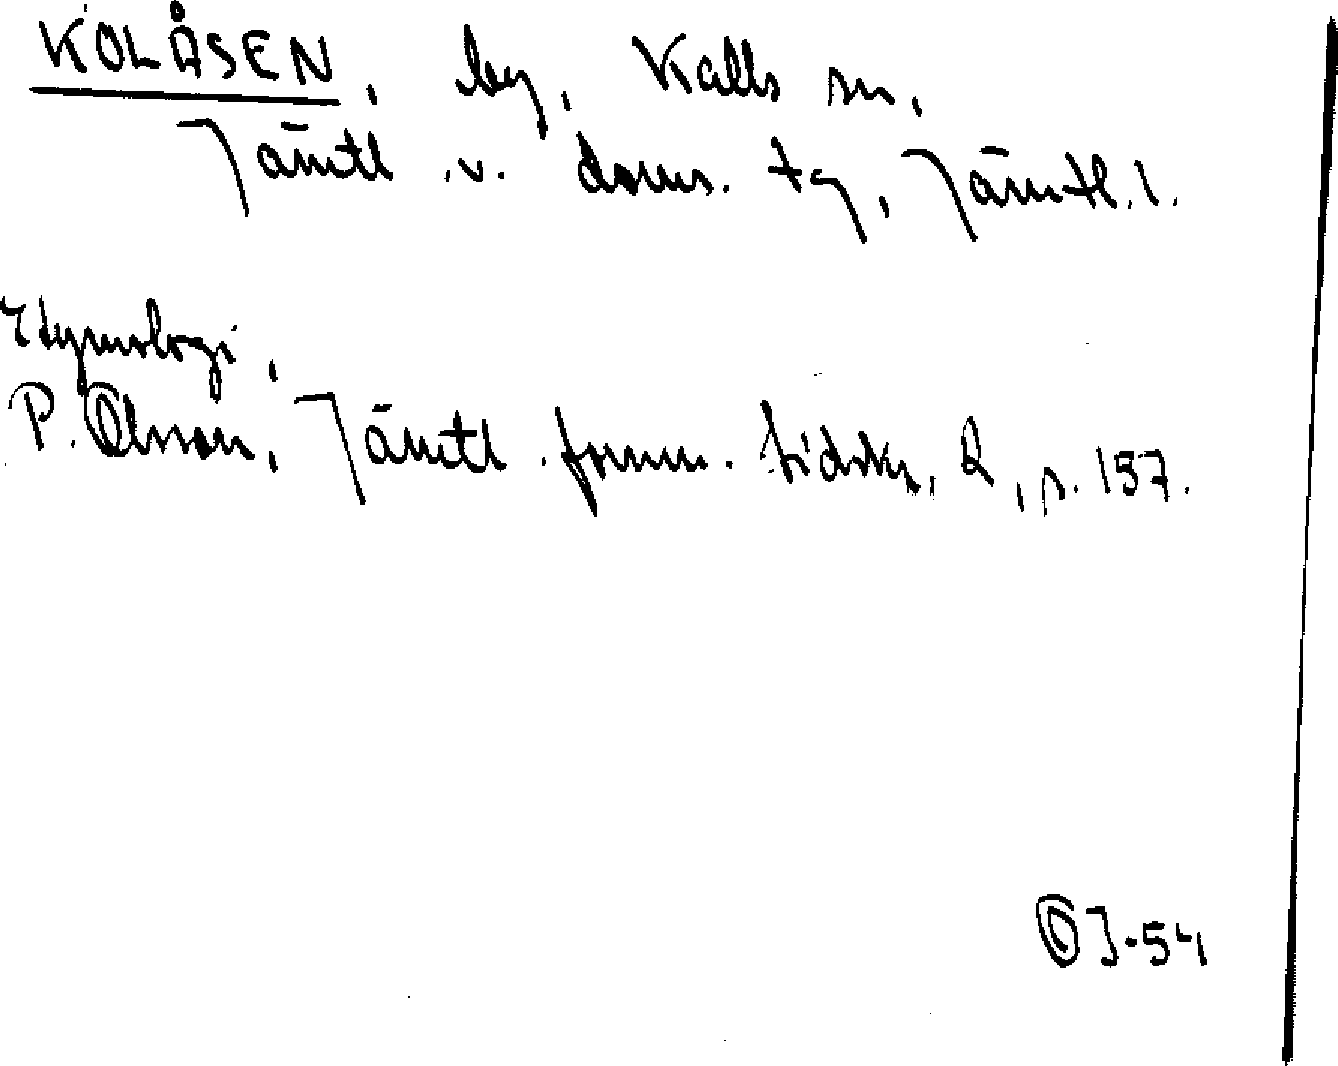 KOLÅSEN, by, Kalls sn,
Jämtl.v. doms. tg, Jämtl.l.
Etymologi,
P. Olsson, Jämtl. fornm. tidskr, 2, s. 157.
OJ-54